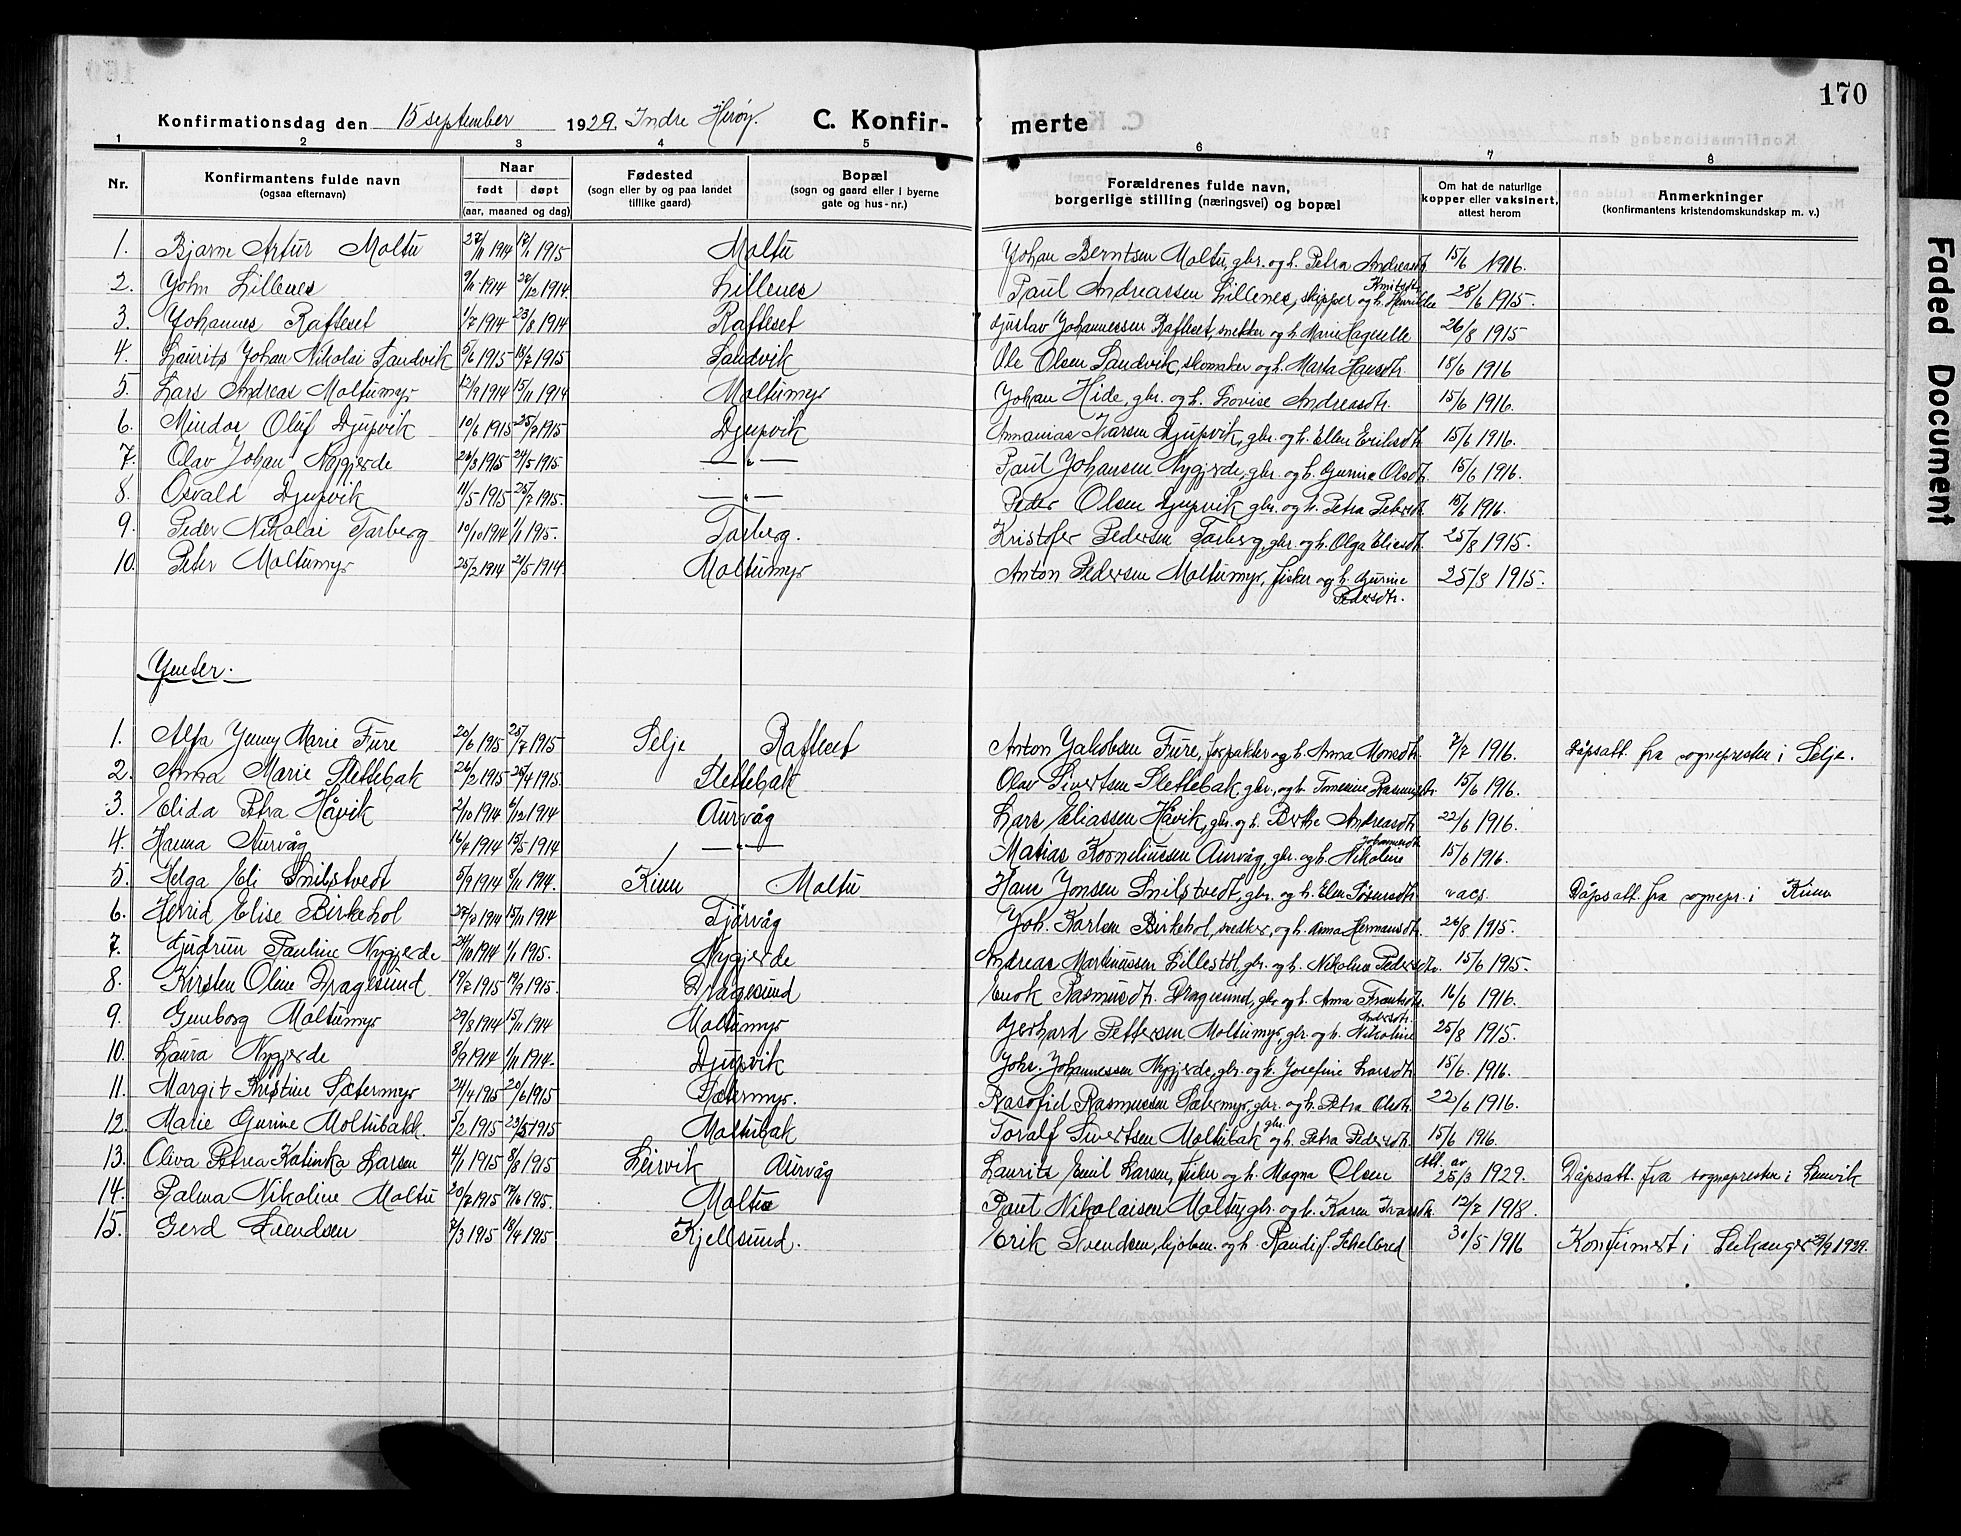 170
Konfirmationsdag den 15 september 1929. Indre Herøy. C. Konfir- merte
1 2 3 4 5 6 7 8
Nr. Konfirmantens fulde navn (ogsaa efternavn) Naar født døpt (aar, maaned og dag) Fødested (sogn eller by og paa landet tillike gaard) Bopæl (sogn og gaard eller i byerne gate og hus-nr.) Forældrenes fulde navn, borgerlige stilling (næringsvei) og bopæl Om hat de naturlige kopper eller vaksinert, attest herom Anmerkninger (konfirmantens kristendomskundskap m. v.)
1. Bjarne Artur Moltu 1914 1915 Moltu Johan Berntsen Moltu, gbr. og h. Petra Andreasdt. 15/6 1916.
2. John Lillenes 9/11 1914 1914. Lillenes Paul Andreassen Lillenes, skipper og h. Henrikke Knutsdt. 28/6 1915.
3. Johannes Rafteset 1/7 1914 23/8 1914 Rafteset Gustav Johannessen Rafteset, snekker og h. Marie Hagnelle 26/8 1915
4. Laurits Johan Nikolai Sandvik 5/6 1915 18/7 1915 Sandvik Ole Olsen Sandvik, skomaker og h. Marta Hansdtr. 18/6 1916
5. Lars Andreas Moltumyr 12/9 1914 15/11 1914 Moltumyr Johan Hide, gbr. og h. Lovise Andreasdtr. 15/6 1916.
6. Mindor Oluf Djupvik 10/6 1915 25/7 1915 Djupvik Ananias Larsen Djupvik, gbr. og h. Ellen Eriksdt. 15/6 1916.
7. Olav Johan Nygjerde 26/3 1915 24/5 1915. — " — Paul Johansen Nygjerde, gbr. og h. Gurine Olsdt. 15/6 1916.
8. Osvald Djupvik 11/5 1915 25/7 1915. — " — Peder Olsen Djupvik gbr. og h. Petra Petersdt. 15/6 1916.
9. Peder Nikolai Tarberg 10/10 1914 1/1 1915. Tarberg. Kristofer Pedersen Tarberg, gbr. og h. Olga Eliasdt. 25/8 1915.
10. Peter Moltumyr 25/2 1914 21/5 1914. Moltumyr Anton Pedersen Moltumyr, fisker og h. Gurine Pedersdtr. 25/8 1915.
Jenter.
1. Alfa Jenny Marie Fure 20/6 1915 25/7 1915 Selje Rafteset Anton Jakobsen Fure, forpakter og h. Anna Monsdt. 7/7 1916. Dåpsatt. fra sognepresten i Selje.
2. Anna Marie Slettebak 26/2 1915 25/4 1915. Slettebak Olav Sivertsen Slettebak, gbr. og h. Tomine Rasmusdtr. 15/6 1916.
3. Elida Petra Håvik 2/10 1914 6/12 1914 Aurvåg Lars Eliassen Håvik, gbr. og h. Berthe Andreasdt. 22/6 1916.
4. Hanna Aurvåg 16/4 1914 15/5 1914 — " — Matias Korneliussen Aurvåg, gbr. og h. Nikoline Johannesdt. 15/6 1916.
5. Helga Eli Snilstvedt 5/9 1914 8/11 1914. Kinn Moltu Hans Jonsen Snilstvedt, gbr. og h. Elen Sørensdt. vacs. Dåpsatt. fra sognepr. i Kinn
6. Henrid Elise Birkehol 1914 15/11 1914 Tjørvåg Joh. Karlsen Birkehol, snedker, og h. Anna Hermansdt. 26/8 1915.
7. Gudrun Pauline Nygjerde 24/10 1914 1/1 1915. Nygjerde Andreas Martinussen Lillestøl, gbr. og h. Nikoline Pedersdtr. 15/6 1915.
8. Kirsten Oline Dragesund 19/7 1915 19/9 1915. Dragesund Enok Rasmusdtr. Dragesund, gbr. og h. Anna Frantsdt. 16/6 1916.
9. Gunborg Moltumyr 29/8 1914 15/11 1914 Moltumyr Gerhard Pettersen Moltumyr, gbr. og h. Nikoline Andersdtr. 25/8 1915.
10. Laura Nygjerde 8/9 1914 1/11 1914. Djupvik Johs. Johannessen Nygjerde, gbr. og h. Josefine Larsdt. 15/6. 1916.
11. Margit Kristine Sætermyr 24/4 1915 20/6 1915 Sætermyr. Rasmus Sætermyr, gbr. og h. Petra Olsdt. 22/6 1916.
12. Marie Gurine Moltubakk. 5/2 1915 23/5 1915 Moltubak Toralf Sivertsen Moltubak gbr. og h. Petra Pedersdt. 15/6 1916.
13. Oliva Petrea Katinka Larsen 4/1 1915 8/8 1915 Leirvik Aurvåg Laurits Emil Larsen, fisker og h. Magna Olsen Att. av 25/3 1929. Dåpsatt. fra sognepresten i Lenvik
14. Palma Nikoline Moltu 20/2 1915 1915. Moltu Paul Nikolaisen Moltu, gbr. og h. Karen Ivarsdt. 12/7 1918.
15. Gerd Svendsen 7/3 1915 18/4 1915 Kjellsund. Erik Svendsen, kjøbm. og h. Randi f. Schelbred 30/5 1916 Konfirmert i Leikanger 29/9 1929.
Faded Document